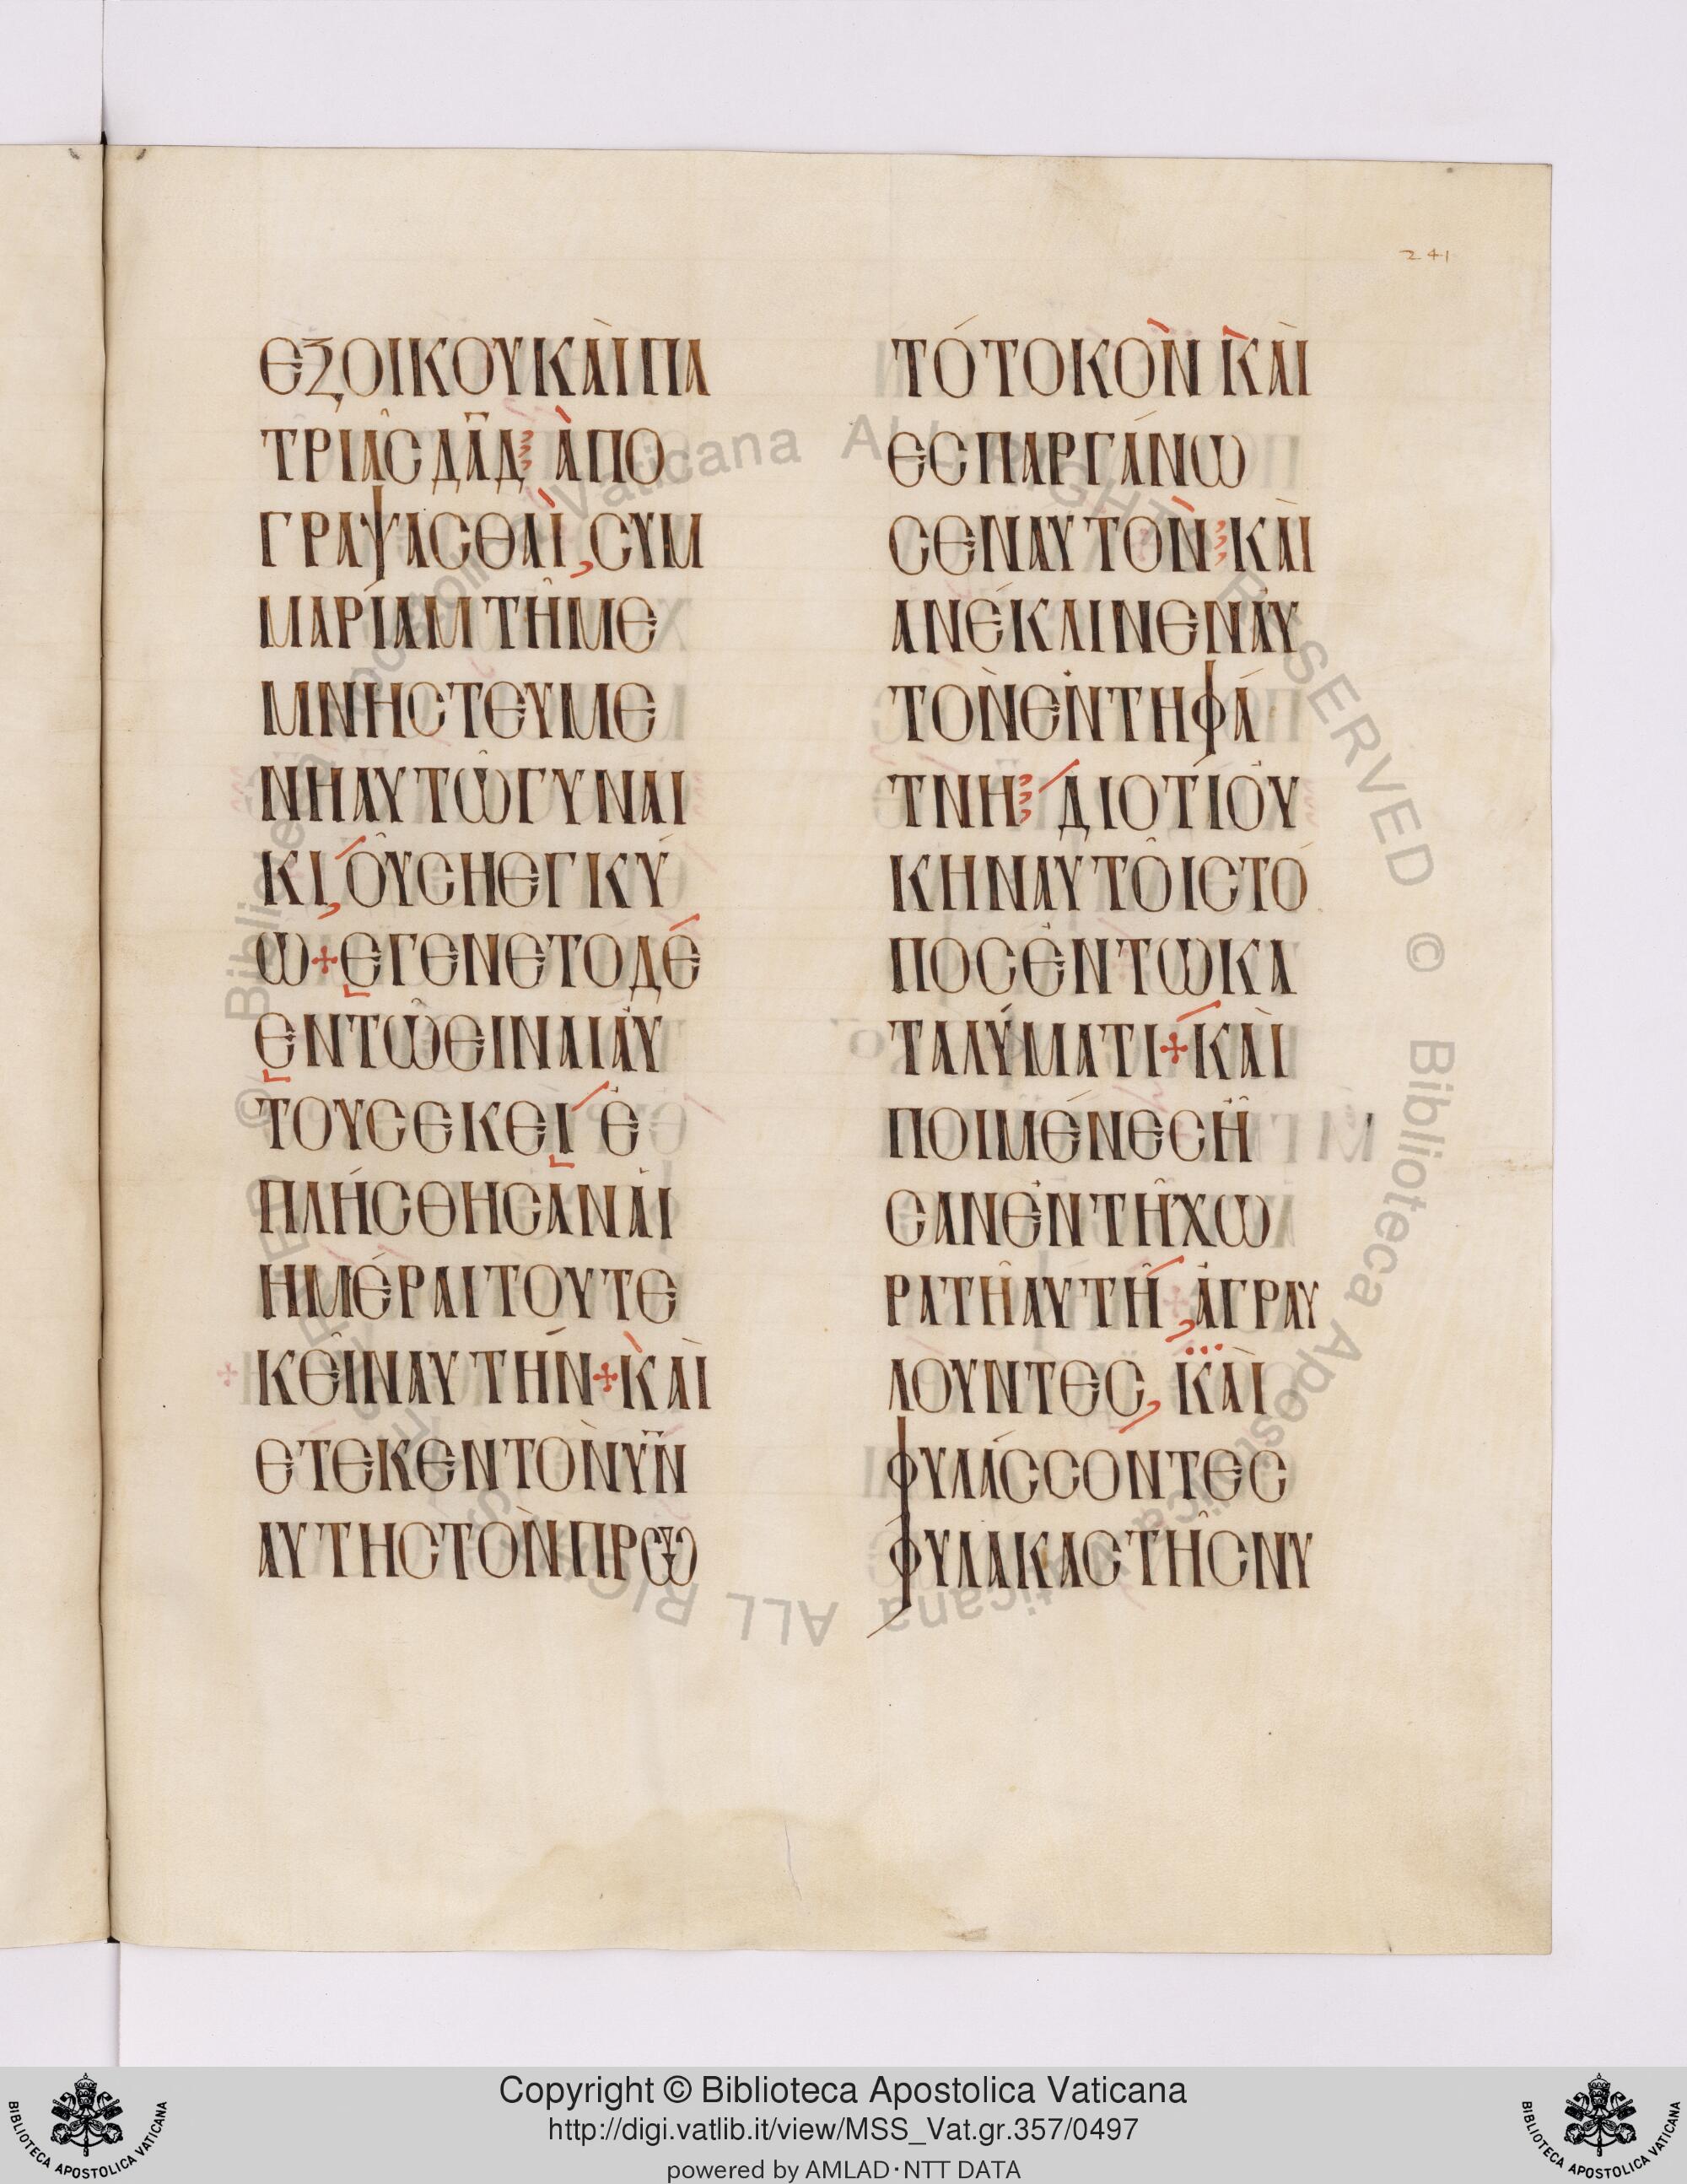 241
ΕΞΟΙΚΟΥΚᾺΙΠΑ
ΤΡΙΑ̂ϹΔΑ̅Δ ἈΠΟ
ΓΡΑΨΑϹΘΑῚ,ϹΥΜ
ΜΑΡΊΑΜΤΗ̂ΜΕ
ΜΝΗϹΤΕΥΜΕ
ΝΗΑΥΤΩ̂ΓΥΝΑΙ
ΚΙ,ΟΥ̓͂ϹΗΕΓΚΎ
Ω+ΕΓΕΝΕΤΟΔΈ
ΕΝΤΩ̂ΕΙΝΑΙΑΥ̓
ΤΟΥϹΕΚΕΙ Ἐ
ΠΛΉϹΘΗϹΑΝΑἸ
ΗΜΈΡΑΙΤΟΥΤΕ
ΚΕΙ̂ΝΑΥΤΉΝ+ΚᾺΙ
ΕΤΕΚΕΝΤῸΝΥ̅Ν̅
ΑΥΤΗϹΤῸΝΠΡΩΤ
ΤΌΤΟΚῸΝ ΚᾺΙ
ΕϹΠΑΡΓΆΝΩ
ϹΕΝΑΥΤῸΝ ΚᾺΙ
ΑΝΈΚΛΙΝΕΝΑΥ̓
ΤῸΝἘΝΤΗΦΆ
ΤΝΗ ΔΙΟΤΊΟΥ̓
ΚΗΝΑΥΤΟΙ̂ϹΤΌ
ΠΟϹἘΝΤΩΚΑ
ΤΑΛΎΜΑΤΙ+ΚᾺΙ
ΠΟΙΜΈΝΕϹΗ̂
ϹΑΝἘΝΤΗ̂ΧΩ
ΡΑΤΗ̂ΑΥΤΗ̂,ἈΓΡΑΥ
ΛΟΥΝΤΕϹ, ΚᾺΙ
ΦΥΛΆϹϹΟΝΤΕϹ
ΦΥΛΑΚΑϹΤΗ̂ϹΝΥ
© Biblioteca Apostolica Vaticana ALL RIGHTS RESERVED © Biblioteca Apostolica Vaticana ALL RIGHTS RESERVED
Copyright © Biblioteca Apostolica Vaticana
http://digi.vatlib.it/view/MSS_Vat.gr.357/0497
powered by AMLAD·NTT DATA
BIBLIOTECA APOSTOLICA VATICANA
BIBLIOTECA APOSTOLICA VATICANA